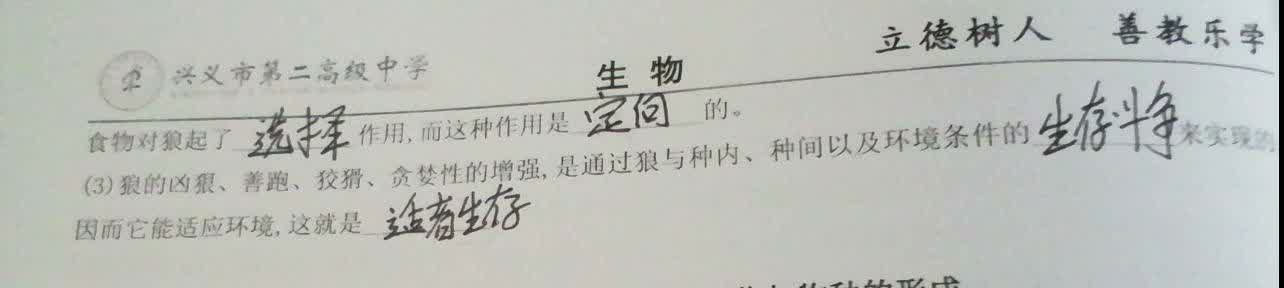 立德树人 善教乐学
兴义市第二高级中学
生物
食物对狼起了 选择 作用,而这种作用是 定向 的。
(3)狼的凶狠、善跑、狡猾、贪婪性的增强,是通过狼与种内、种间以及环境条件的 生存斗争 来实现的
因而它能适应环境,这就是 适者生存